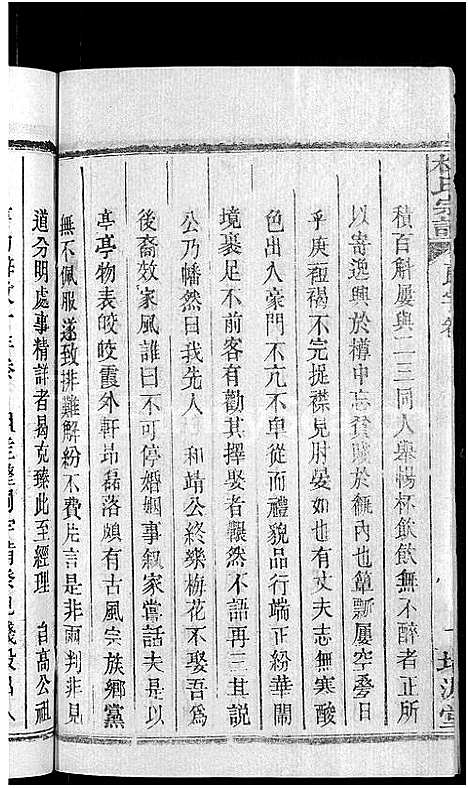 林氏宗譜
積百斛屢與二三同人舉觴杯飲飲無不醉者正所
以寄逸興於樽中忘貧賤於甑內也簞瓢屢空疊日
乎庚裋褐不完捉襟見肘晏如也有丈夫志無寒酸
色出入豪門不亢不卑從而禮貌品行端正紛華鬧
境裹足不前客有勸其擇娶者囅然不語再三其說
公乃幡然曰我先人 和靖公終樂梅花不娶吾為
後裔效家風誰曰不可停婚姻事叙家嘗話夫是以
亭亭物表皎皎霞外軒昂磊落頗有古風宗族鄉黨
無不佩服遂致排難解紛不費片言是非兩判非見
道分明處事精詳者曷克臻此至經理 自高公祖